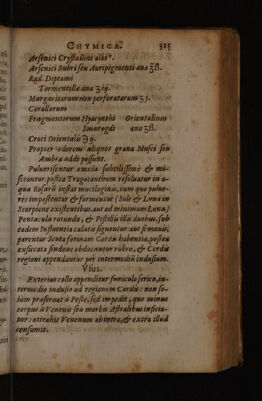 CHYMICA. 515
Arsenici Crystallini albi
Arsenici Rubri seu Auripigmenti ana ℥ß.
Rad. Diptami
Tormentillæ ana ʒ iij.
Margaritarum non perforatarum ʒ j.
Corallorum
Fragmentorum Hyacynthi Orientalium
Smaragdi ana ʒß.
Croci Orientalis ij.
Propter odorem aliquot grana Musci seu
Ambræ addi possunt.
Pulverisentur omnia subtilissimè & mi-
sceantur, postea Tragacanthum resolvatur in a-
qua Rosarū instar mucilaginis, cum quo pulve-
res impastentur & formentur (Sole & Luna in
Scorpione existentibus, aut ad minimum Luna)
Pentacula rotunda, & Pistillis illis duobus, sub
eadem Influentia calatis signentur, aut si mavis,
parentur Scuta formam Cordis habentia, postea
exsiccata sindone obducantur rubro, & Cordis
regioni appendantur per intermediū indusium.
Vsus.
Exterius collo appenditur funiculo serico, in-
termedio indusio ad regionem Cordis: non so-
lùm præservat à Peste, sed impedit, quo minus
corpus à Venenis seu morbis Astralibus inficia-
tur: attrahit Venenum ab intra, & extra illud
consumit.